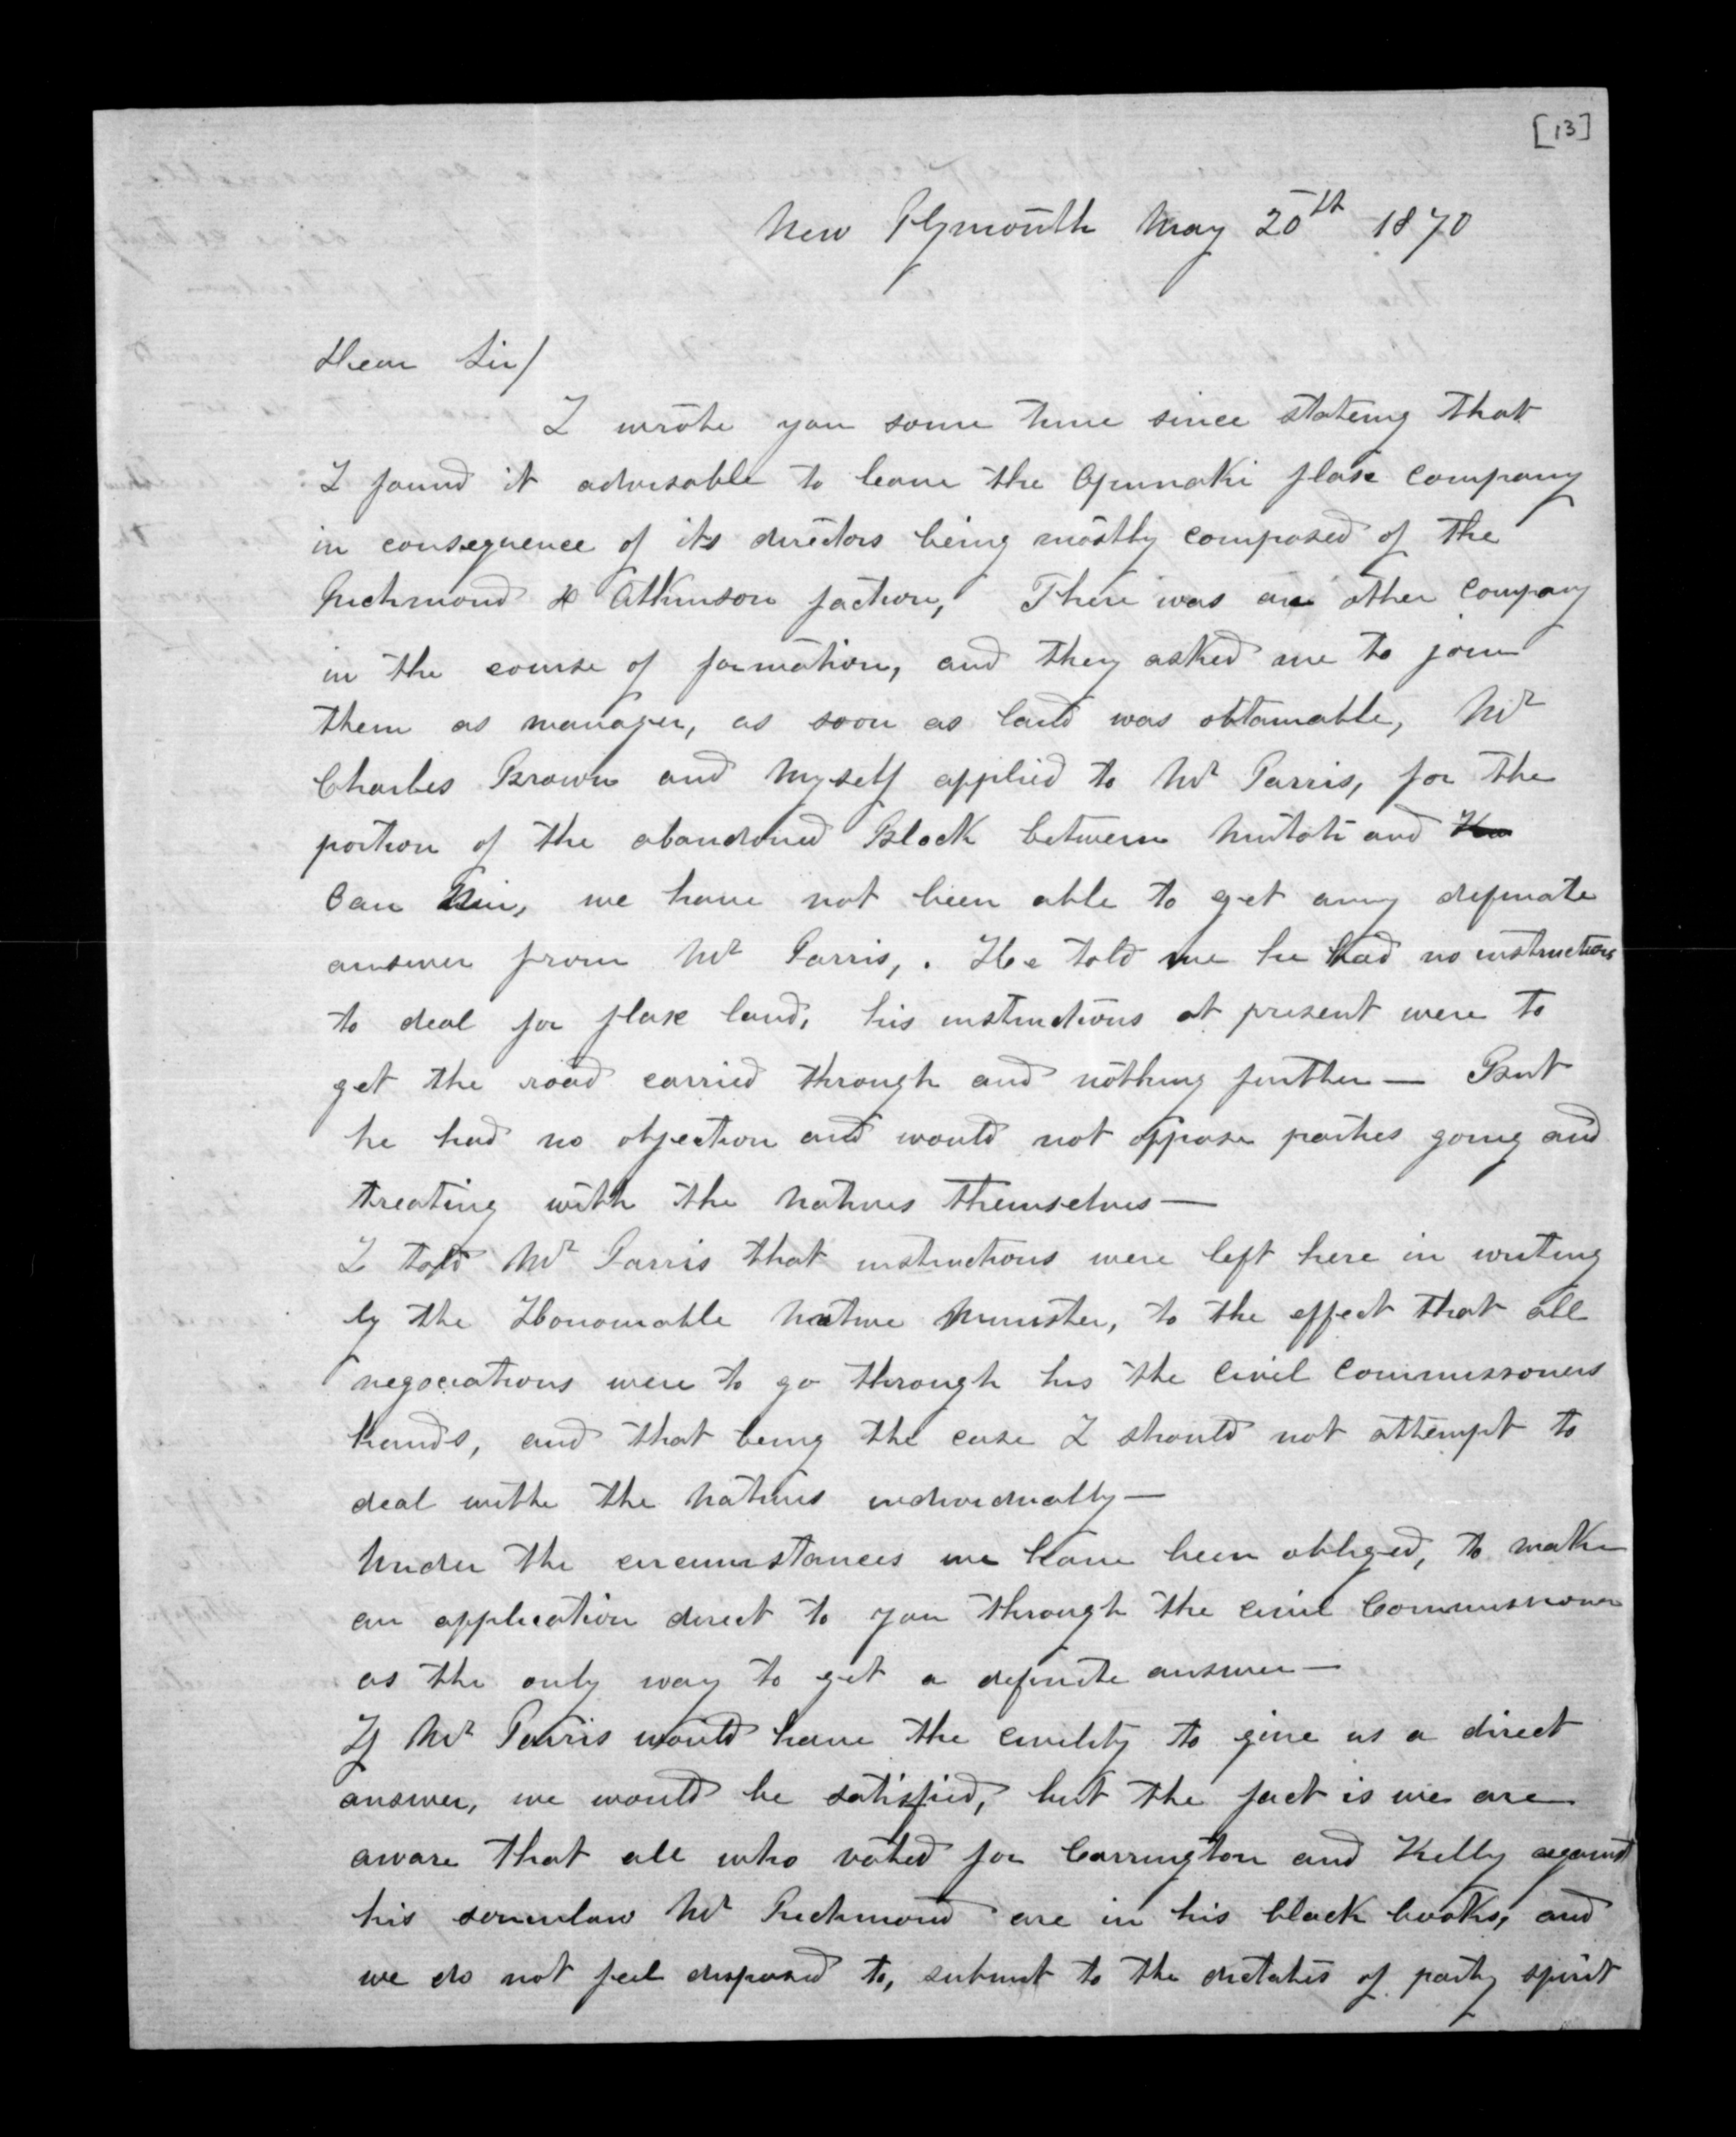 [13]
New Plymouth May 20th 1870
Dear Sir/
I wrote you some time since stating that
I found it advisable to leave the Opunaki flax Company
in consequence of its directors being mostly composed of the
Richmond & Atkinson faction, There was an other Company
in the course of formation, and they asked me to join
them as manager, as soon as land was obtainable, Mr
Charles Brown and Myself applied to Mr Parris, for the
portion of the abandoned Block between and
we have not been able to get any definate
answer from Mr Parris, . He told me he had no instructions
to deal for flax land, his instructions at present were to
get the road carried through and nothing further — But
he had no objection and would not oppose parties going and
treating with the Natives themselves —
I told Mr Parris that instructions were left here in writing
by the Honourable Native Minister, to the effect that all
negociations were to go through his the Civil Commissoners
hands, and that being the case I should not attempt to
deal withe the Natives individually —
Under the circumstances we have been obliged, to make
an application direct to you through the Civil Commissioner
as the only way to get a definite answer —
If Mr Parris would have the civility to give us a direct
answer, we would be satisfied, but the fact is we are
aware that all who voted for Carrington and Kelly against
his soninlaw Mr Richmond are in his black books, and
we do not feel disposed to, submit to the dictates of party spirit